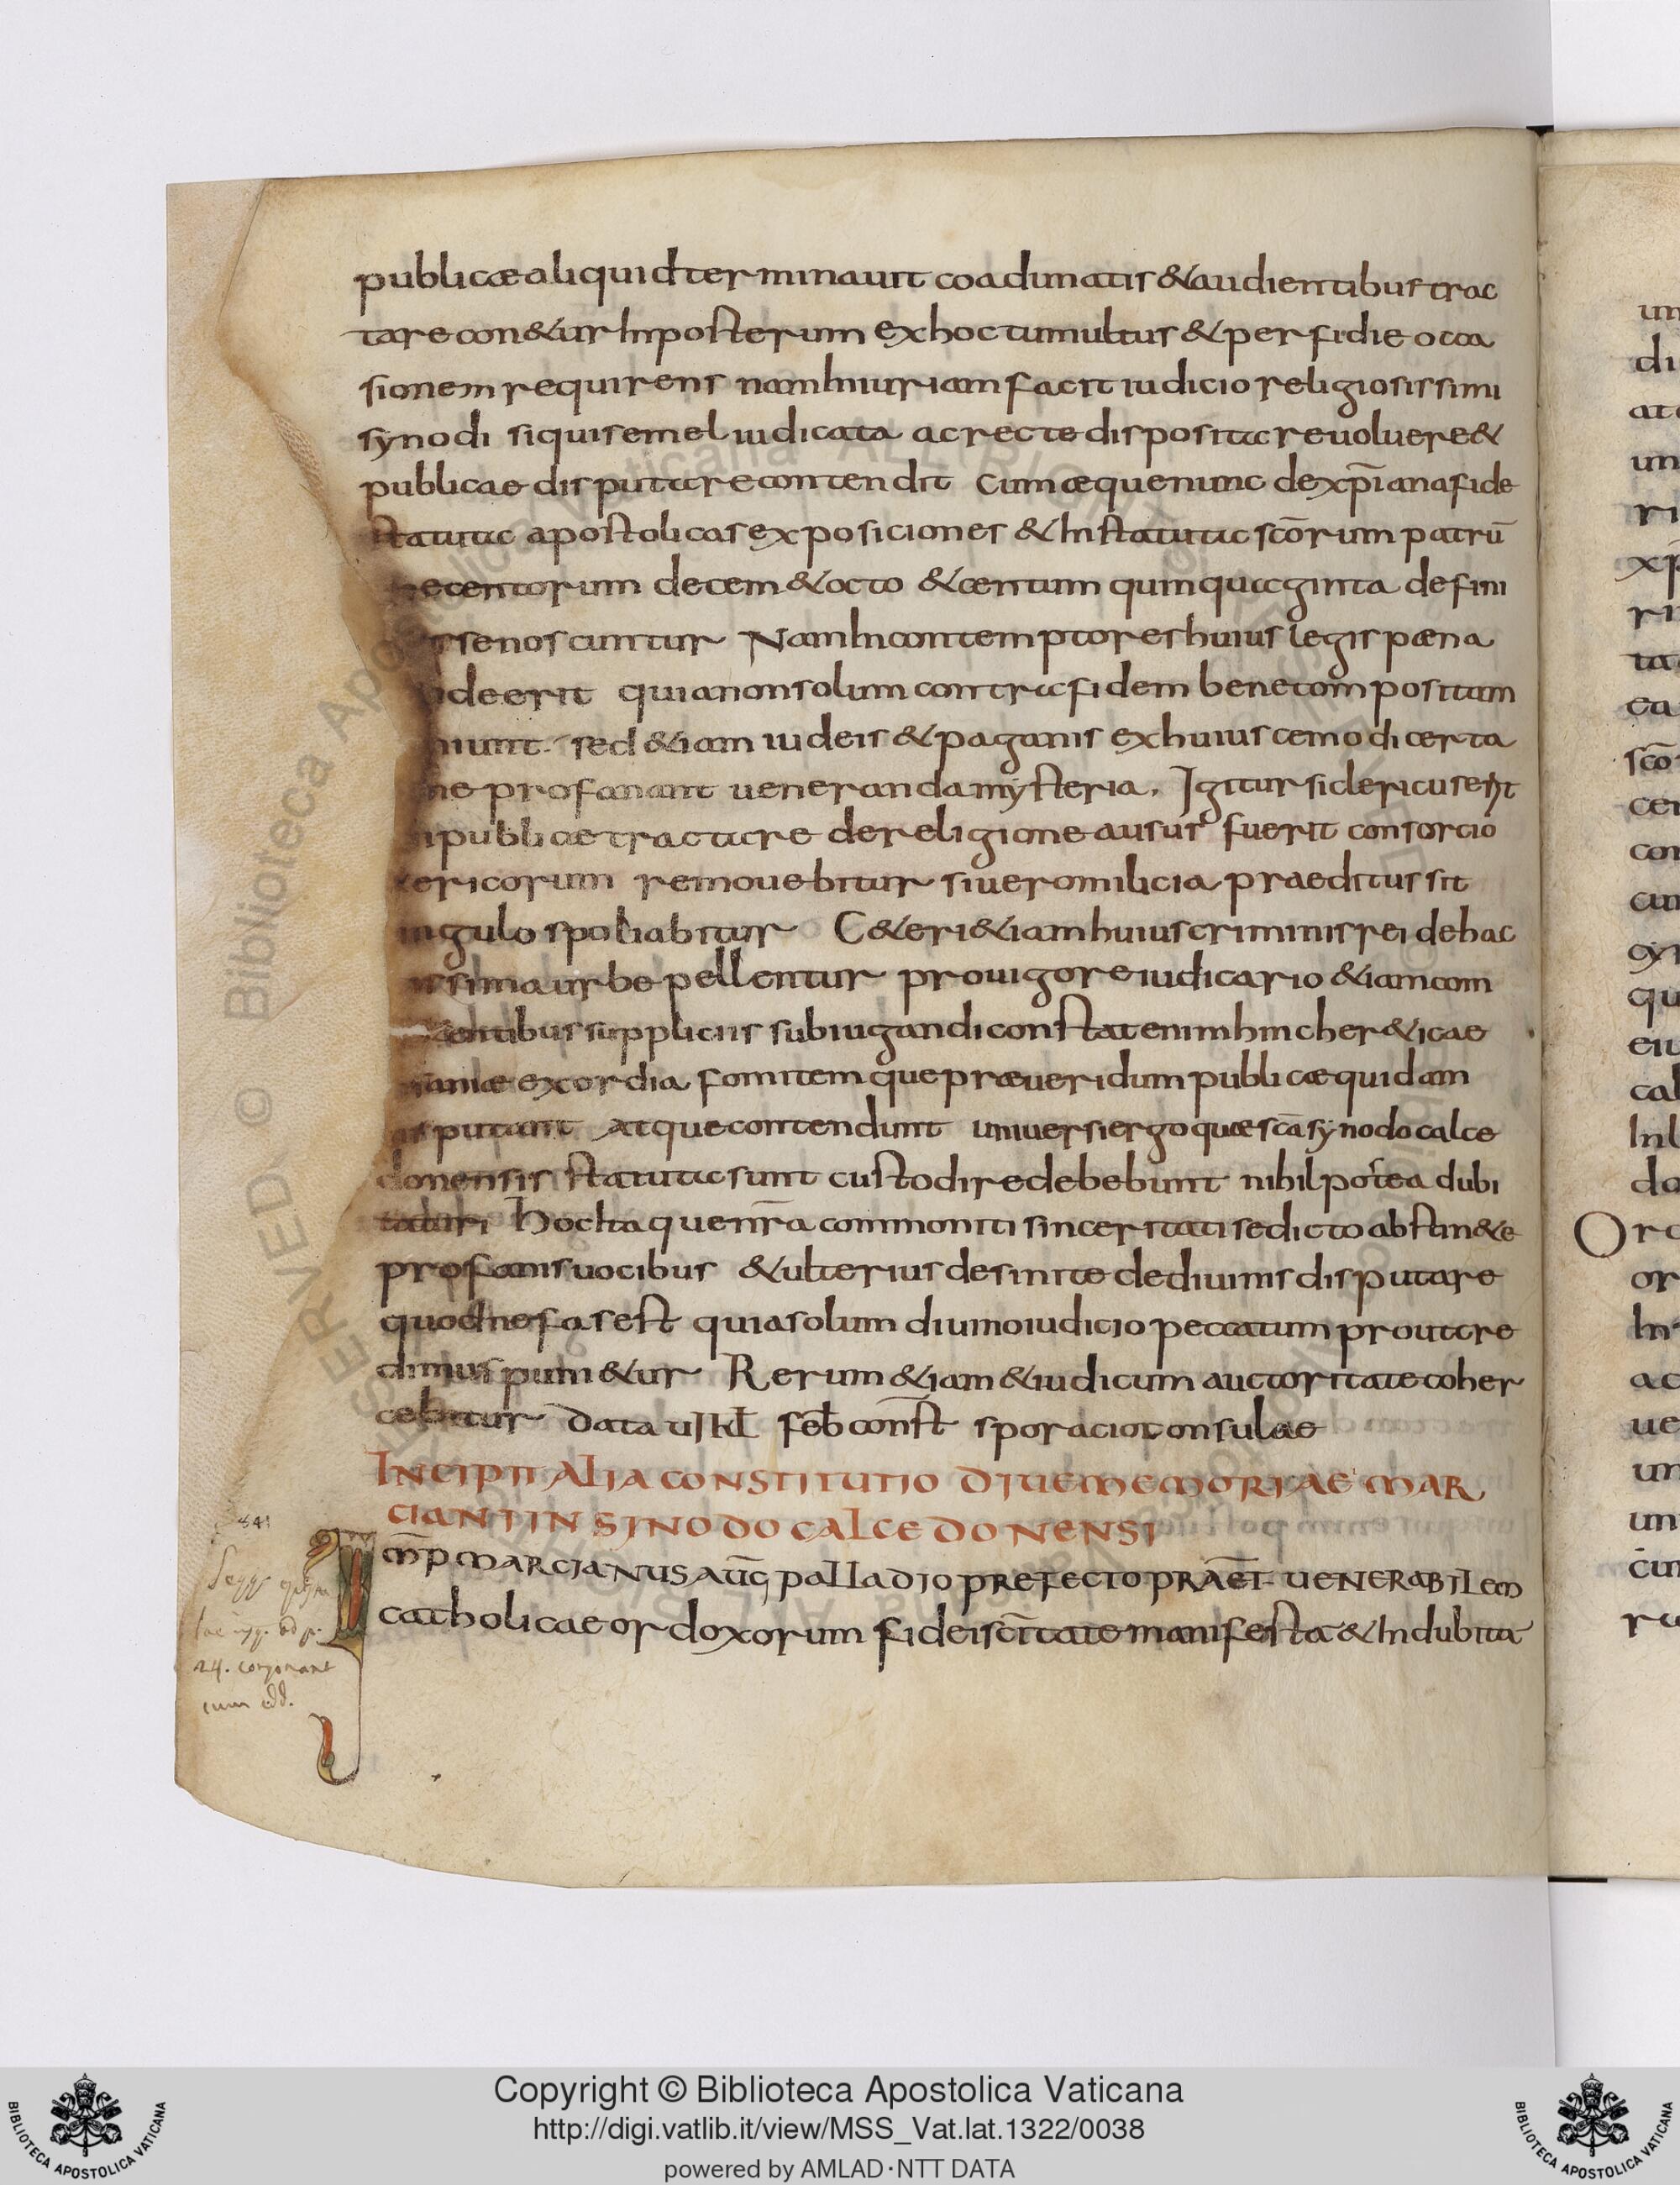 publicæ aliquid terminauit coadunatis & audientibus trac
tare con&ur Inposterum ex hoc tumultus & perfidie occa
sionem requirens nam Iniuriam facit iudicio religiosissimi
synodi siquis semel iudicata ac recte disposita reuoluere &
publicae disputare contendit Cum æque nunc de xp̄iana fide
statuta apostolicas exposiciones & Instatuta sc̄orum patrū
decem & octo & centum quinquaginta defini
noscuntur Nam Incontemptores huius legis pæna
deerit quia non solum contra fidem bene compositam
sed &iam iudeis & paganis ex huiuscemodi certa
profanant ueneranda mysteria. Igitur si clericus erit
publicæ tractare de religione ausus fuerit consorcio
remouebitur si uero milicia praeditus sit
spoliabitur C&eri &iam huius criminis rei de hac
urbe pellentur pro uigore iudicario &iam com
suppliciis subiugandi constat enim hinc her&icae
exordia fomitemque præueridum publicæ quidam
putant atque contendunt uniuersi ergo quæ sc̄a synodo calce
donensis statuta sunt custodire debebunt nihil postea dubi
taturi Hoc Itaque nr̄a commoniti sinceritatis edicto abstin&e
profanis uocibus & ulterius desinite de diuinis disputare
quod nefas est quia solum diuino iudicio peccatum prout cre
dimus puni&ur Rerum &iam & iudicum auctoritate coher
cebitur Data uj kl feb const sporacio consulae
INCIPIT ALIA CONSTITUTIO DIUE MEMORIAE MAR
CIANI IN SINODO CALCEDONENSI
IM̄P MARCIANUS AUḠ PALLADIO PREFECTO PRAET̄ UENERABILEM
catholicae ordoxorum fidei sc̄itate manifesta & Indubita
841
24.
cum edd.
um
di
un
ri
ri
ta
ea
sc̄o
cer
con
cun
qu
eiu
cal
do
Oro
or
ac
ue
um
un
cun
© Biblioteca Apostolica Vaticana
Copyright © Biblioteca Apostolica Vaticana
http://digi.vatlib.it/view/MSS_Vat.lat.1322/0038
powered by AMLAD·NTT DATA
BIBLIOTECA APOSTOLICA VATICANA
BIBLIOTECA APOSTOLICA VATICANA